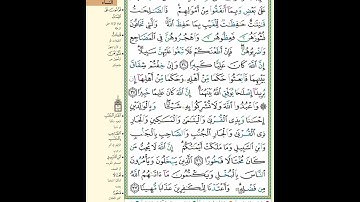 عَلَىٰ بَعْضٍ وَبِمَآ أَنفَقُوا۟ مِنْ أَمْوَٰلِهِمْ ۚ فَٱلصَّـٰلِحَـٰتُ
قَـٰنِتَـٰتٌ حَـٰفِظَـٰتٌ لِّلْغَيْبِ بِمَا حَفِظَ ٱللَّهُ ۚ وَٱلَّـٰتِى تَخَافُونَ
نُشُوزَهُنَّ فَعِظُوهُنَّ وَٱهْجُرُوهُنَّ فِى ٱلْمَضَاجِعِ
وَٱضْرِبُوهُنَّ ۖ فَإِنْ أَطَعْنَكُمْ فَلَا تَبْغُوا۟ عَلَيْهِنَّ سَبِيلًا ۗ
إِنَّ ٱللَّهَ كَانَ عَلِيًّا كَبِيرًا ٣٤ وَإِنْ خِفْتُمْ شِقَاقَ
بَيْنِهِمَا فَٱبْعَثُوا۟ حَكَمًا مِّنْ أَهْلِهِۦ وَحَكَمًا مِّنْ أَهْلِهَآ إِن
يُرِيدَآ إِصْلَـٰحًا يُوَفِّقِ ٱللَّهُ بَيْنَهُمَآ ۗ إِنَّ ٱللَّهَ كَانَ عَلِيمًا خَبِيرًا ٣٥
۞ وَٱعْبُدُوا۟ ٱللَّهَ وَلَا تُشْرِكُوا۟ بِهِۦ شَيْـًٔا ۖ وَبِٱلْوَٰلِدَيْنِ
إِحْسَـٰنًا وَبِذِى ٱلْقُرْبَىٰ وَٱلْيَتَـٰمَىٰ وَٱلْمَسَـٰكِينِ وَٱلْجَارِ
ذِى ٱلْقُرْبَىٰ وَٱلْجَارِ ٱلْجُنُبِ وَٱلصَّاحِبِ بِٱلْجَنۢبِ
وَٱبْنِ ٱلسَّبِيلِ وَمَا مَلَكَتْ أَيْمَـٰنُكُمْ ۗ إِنَّ ٱللَّهَ لَا يُحِبُّ مَن
كَانَ مُخْتَالًا فَخُورًا ٣٦ ٱلَّذِينَ يَبْخَلُونَ وَيَأْمُرُونَ
ٱلنَّاسَ بِٱلْبُخْلِ وَيَكْتُمُونَ مَآ ءَاتَىٰهُمُ ٱللَّهُ
مِن فَضْلِهِۦ ۗ وَأَعْتَدْنَا لِلْكَـٰفِرِينَ عَذَابًا مُّهِينًا ٣٧